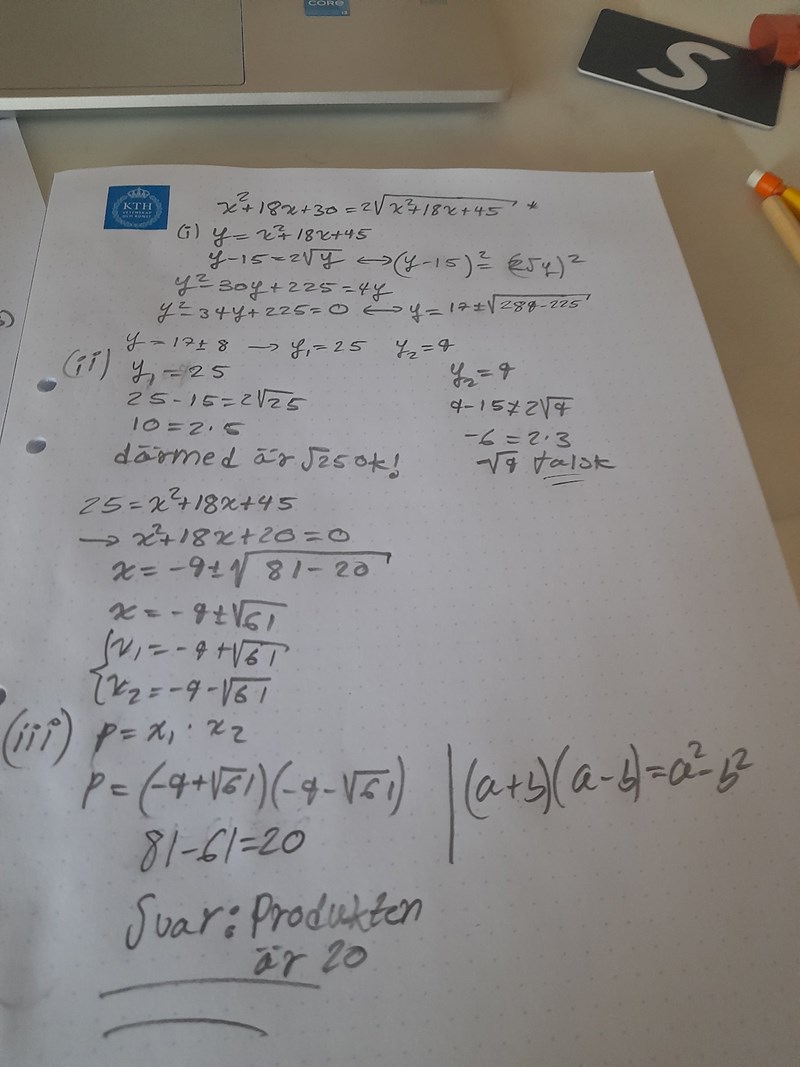 CORE
S
KTH
VETENSKAP
OCH KONST
x²+18x+30=2√x²+18x+45 *
(i) y=x²+18x+45
y-15=2√y ⟷(y-15)²=(2√y)²
y²-30y+225=4y
y²-34y+225=0 ⟷y=17±√289-225
y=17±8 → y₁=25 y₂=9
(ii) y₁=25 y₂=9
25-15=2√25 9-15≠2√9
10=2·5 -6=2·3
därmed är √25 ok! √9 falsk
25=x²+18x+45
→ x²+18x+20=0
x=-9±√81-20
x=-9±√61
{x₁=-9+√61
{x₂=-9-√61
(iii) P=x₁·x₂
P=(-9+√61)(-9-√61) |(a+b)(a-b)=a²-b²
81-61=20
Svar: Produkten
är 20